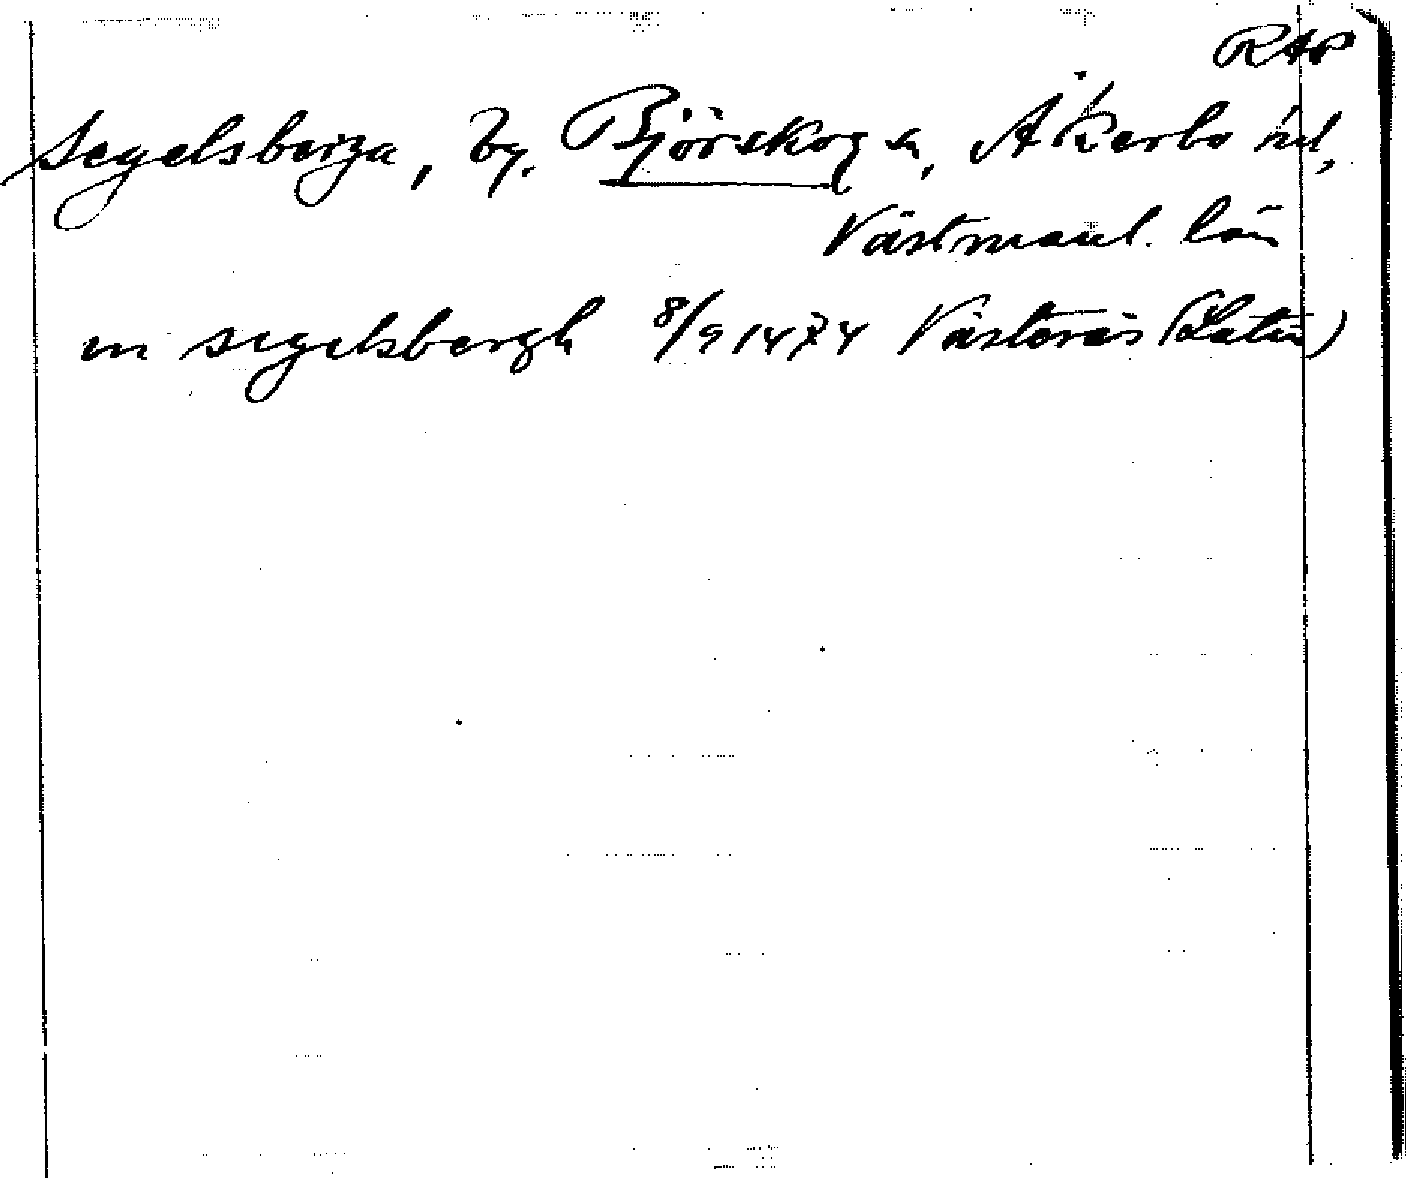 RAP
Segelsberga, by. Björskog sn, Åkerbo hd,
Västmanl. län
in segelsbergh 8/9 1474 Västerås (Latin)